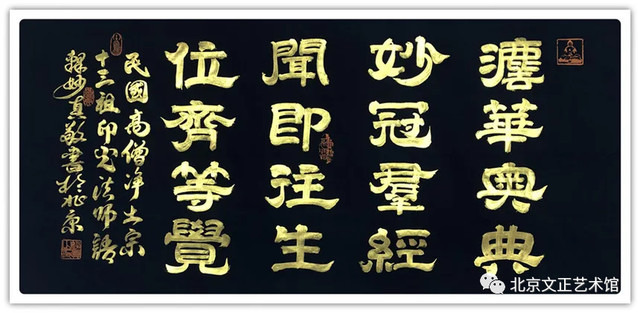 灋華奧典
妙冠羣經
聞即往生
位齊等覺
民國高僧净土宗
十三祖印光法師語
釋妙真敬書於北京
北京文正艺术馆